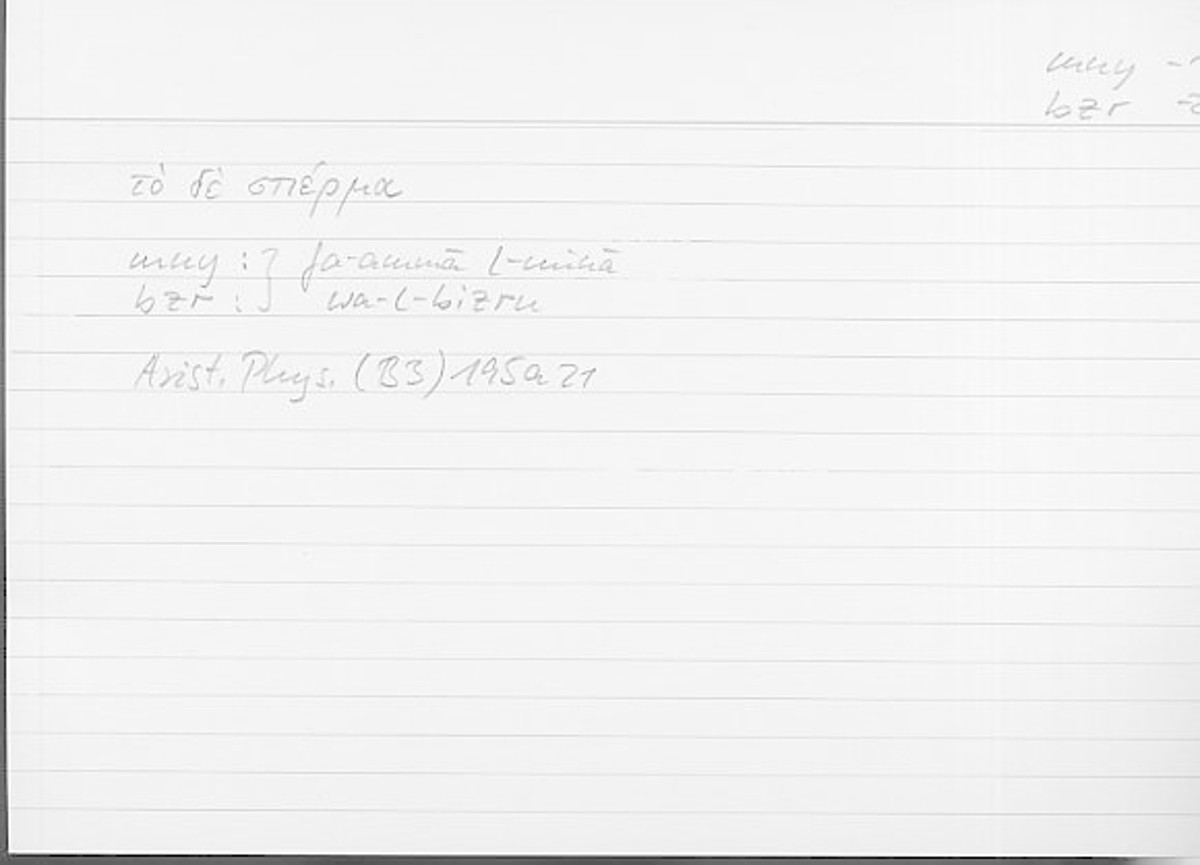 mny -1
bzr -2
τὸ δὲ σπέρμα
mny : } fa-ammā l-minā
bzr : } wa-l-bizru
Arist. Phys. (B3) 195a21